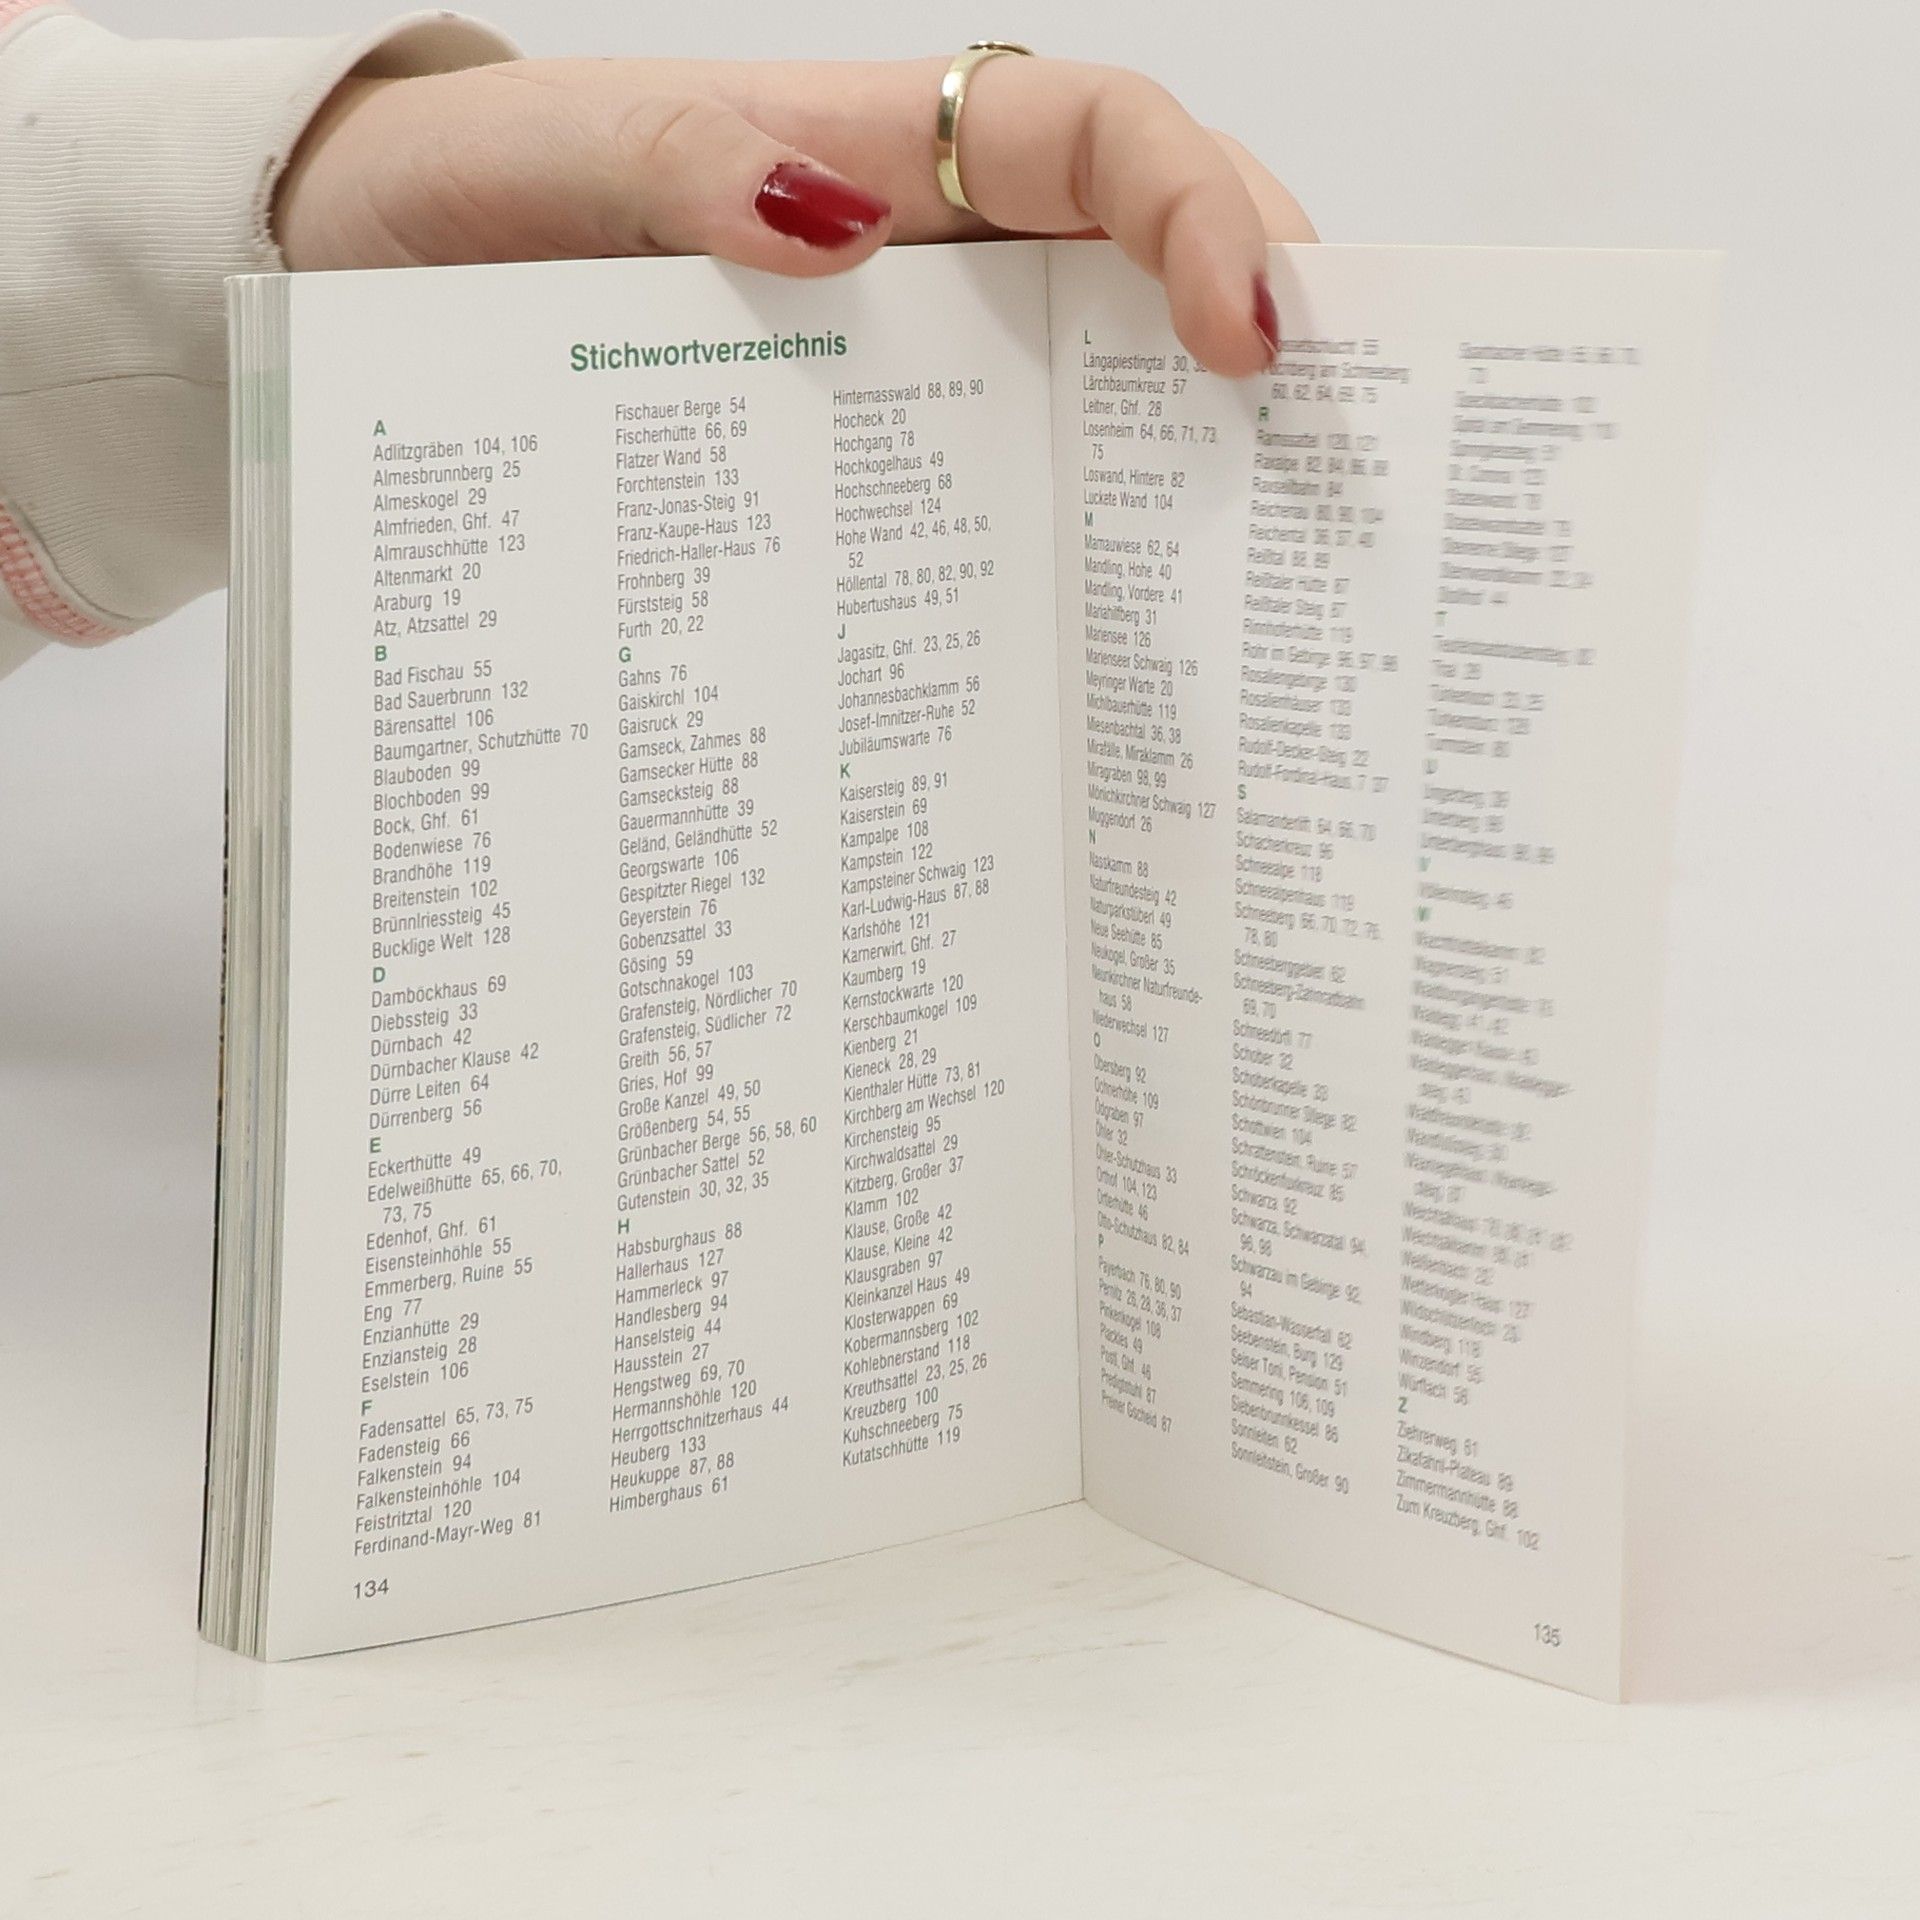 Stichwortverzeichnis
A
Adlitzgräben 104, 106
Almesbrunnberg 25
Almeskogel 29
Almfrieden, Ghf. 47
Almrauschhütte 123
Altenmarkt 20
Araburg 19
Atz, Atzsattel 29
B
Bad Fischau 55
Bad Sauerbrunn 132
Bärensattel 106
Baumgartner, Schutzhütte 70
Blauboden 99
Blochboden 99
Bock, Ghf. 61
Bodenwiese 76
Brandhöhe 119
Breitenstein 102
Brünnlriessteig 45
Bucklige Welt 128
D
Damböckhaus 69
Diebssteig 33
Dürnbach 42
Dürnbacher Klause 42
Dürre Leiten 64
Dürrenberg 56
E
Eckerthütte 49
Edelweißhütte 65, 66, 70,
73, 75
Edenhof, Ghf. 61
Eisensteinhöhle 55
Emmerberg, Ruine 55
Eng 77
Enzianhütte 29
Enziansteig 28
Eselstein 106
F
Fadensattel 65, 73, 75
Fadensteig 66
Falkenstein 94
Falkensteinhöhle 104
Feistritztal 120
Ferdinand-Mayr-Weg 81
Fischauer Berge 54
Fischerhütte 66, 69
Flatzer Wand 58
Forchtenstein 133
Franz-Jonas-Steig 91
Franz-Kaupe-Haus 123
Friedrich-Haller-Haus 76
Frohnberg 39
Fürststeig 58
Furth 20, 22
G
Gahns 76
Gaiskirchl 104
Gaisruck 29
Gamseck, Zahmes 88
Gamsecker Hütte 88
Gamsecksteig 88
Gauermannhütte 39
Geländ, Geländhütte 52
Georgswarte 106
Gespitzter Riegel 132
Geyerstein 76
Gobenzsattel 33
Gösing 59
Gotschnakogel 103
Grafensteig, Nördlicher 70
Grafensteig, Südlicher 72
Greith 56, 57
Gries, Hof 99
Große Kanzel 49, 50
Größenberg 54, 55
Grünbacher Berge 56, 58, 60
Grünbacher Sattel 52
Gutenstein 30, 32, 35
H
Habsburghaus 88
Hallerhaus 127
Hammerleck 97
Handlesberg 94
Hanselsteig 44
Hausstein 27
Hengstweg 69, 70
Hermannshöhle 120
Herrgottschnitzerhaus 44
Heuberg 133
Heukuppe 87, 88
Himberghaus 61
Hinternasswald 88, 89, 90
Hocheck 20
Hochgang 78
Hochkogelhaus 49
Hochschneeberg 68
Hochwechsel 124
Hohe Wand 42, 46, 48, 50,
52
Höllental 78, 80, 82, 90, 92
Hubertushaus 49, 51
J
Jagasitz, Ghf. 23, 25, 26
Jochart 96
Johannesbachklamm 56
Josef-Imnitzer-Ruhe 52
Jubiläumswarte 76
K
Kaisersteig 89, 91
Kaiserstein 69
Kampalpe 108
Kampstein 122
Kampsteiner Schwaig 123
Karl-Ludwig-Haus 87, 88
Karlshöhe 121
Karnerwirt, Ghf. 27
Kaumberg 19
Kernstockwarte 120
Kerschbaumkogel 109
Kienberg 21
Kieneck 28, 29
Kienthaler Hütte 73, 81
Kirchberg am Wechsel 120
Kirchensteig 95
Kirchwaldsattel 29
Kitzberg, Großer 37
Klamm 102
Klause, Große 42
Klause, Kleine 42
Klausgraben 97
Kleinkanzel Haus 49
Klosterwappen 69
Kobermannsberg 102
Kohlebnerstand 118
Kreuthsattel 23, 25, 26
Kreuzberg 100
Kuhschneeberg 75
Kutatschhütte 119
134
L
Längapiestingtal 30,
Lärchbaumkreuz 57
Leitner, Ghf. 28
Losenheim 64, 66, 71, 73,
75
Loswand, Hintere 82
Luckete Wand 104
M
Mamauwiese 62, 64
Mandling, Hohe 40
Mandling, Vordere 41
Mariahilfberg 31
Mariensee 126
Marienseer Schwaig 126
Meyringer Warte 20
Michlbauerhütte 119
Miesenbachtal 36, 38
Mirafälle, Miraklamm 26
Miragraben 98, 99
Mönichkirchner Schwaig 127
Muggendorf 26
N
Nasskamm 88
Naturfreundesteig 42
Naturparkstüberl 49
Neue Seehütte 85
Neukogel, Großer 35
Neunkirchner Naturfreunde-
haus 58
Niederwechsel 127
O
Obersberg 92
Ochnerhöhe 109
Ödgraben 97
Öhler 32
Öhler-Schutzhaus 33
Orthof 104, 123
Orterhütte 46
Otto-Schutzhaus 82, 84
P
Payerbach 76, 80, 90
Pernitz 26, 28, 36, 37
Pinkenkogel 108
Plackles 49
Postl, Ghf. 46
Predigtstuhl 87
Preiner Gscheid 87
55
am Schneeberg
60, 62, 64, 69, 75
R
Ramssattel 120, 121
Raxalpe 82, 84, 86, 88
Raxseilbahn 84
Reichenau 80, 90, 104
Reichental 36, 37, 40
Reißtal 88, 89
Reißtaler Hütte 87
Reißtaler Steig 87
Rinnhoferhütte 119
Rohr im Gebirge 96, 97, 98
Rosaliengebirge 130
Rosalienhäuser 133
Rosalienkapelle 133
Rudolf-Decker-Steig 22
S
Salamanderlift 64, 66, 70
Schacherkreuz 96
Schneealpe 118
Schneealpenhaus 119
Schneeberg 66, 70, 72, 76,
78, 80
Schneeberggebiet 62
Schneeberg-Zahnradbahn
69, 70
Schneedörfl 77
Schober 32
Schoberkapelle 33
Schönbrunner Stiege 82
Schottwien 104
Schrattenstein, Ruine 57
Schröckenfuxkreuz 85
Schwarza 92
Schwarza, Schwarzatal 94,
96, 98
Schwarzau im Gebirge 92,
94
Sebastian-Wasserfall 62
Seebenstein, Burg 129
Seiser Toni, Pension 51
Semmering 106, 109
Siebenbrunnkessel 86
Sonnleiten 62
Sonnleitstein, Großer 90
T
U
V
W
Windberg 118
Winzendorf 55
Würflach 56
Z
Ziehrerweg 61
Zikafahnl-Plateau 89
Zimmermannhütte 88
Zum Kreuzberg, Ghf. 102
135